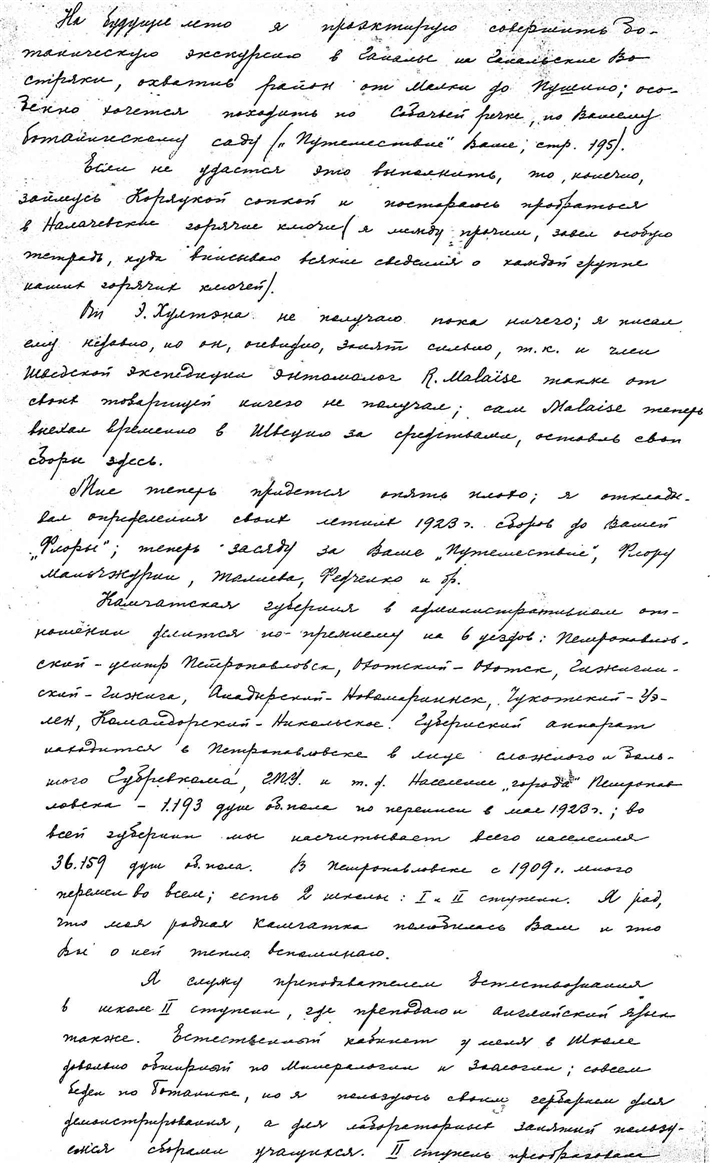 На будущее лето я проэктирую совершить бо-
таническую экскурсию в Ганалы на Ганальские Во
стряки, охватив район от Малки до Пущино; осо-
бенно хочется походить по Собачьей речке, по Вашему
ботаническому саду („Путешествие" Ваше, стр. 195).
Если не удастся это выполнить, то, конечно,
займусь Коряцкой сопкой и постараюсь пробраться
в Налачевские горячие ключи (я между прочим, завел особую
тетрадь, куда вписываю всякие сведения о каждой группе
наших горячих ключей).
От Э. Хултэна не получаю пока ничего; я писал
ему недавно, но он, очевидно, занят сильно, т.к. и член
Шведской экспедиции энтомолог R. Malaise также от
своих товарищей ничего не получал; сам Malaise теперь
выехал временно в Швецию за средствами, оставив свои
сборы здесь.
Мне теперь придется опять плохо; я отклады-
вал определения своих летних 1923 г. сборов до Вашей
„Флоры"; теперь засяду за Ваше „Путешествие", Флору
Маньчжурии, Талиева, Федченко и др.
Камчатская губерния в административном от-
ношении делится по-прежнему на 6 уездов: Петропавлов-
ский - центр Петропавловск, Охотский - Охотск, Гижигин-
ский - Гижига, Анадырский - Новомариинск, Чукотский - Уэ-
лен, Командорский - Никольское. Губернский аппарат
находится в Петропавловске в лице сложного и боль-
шого Губревкома, ГПУ. и т.д. Население „города" Петропав
ловска - 1.193 душ об. пола по переписи в мае 1923 г.; во
всей губернии мы насчитываем всего населения
36.159 душ об. пола. В Петропавловске с 1909 г. много
перемен во всем; есть 2 школы: I и II ступени. Я рад,
что моя родная Камчатка полюбилась Вам и что
Вы о ней тепло вспоминаю.
Я служу преподавателем Естествознания
в школе II ступени, где преподаю и английский язык
также. Естественный кабинет у меня в Школе
довольно обширный по Минералогии и Зоологии; совсем
беден по Ботанике, но я пользуюсь своим гербарием для
демонстрирования, а для лабораторных занятий пользу-
емся сборами учащихся. II ступень преобразован